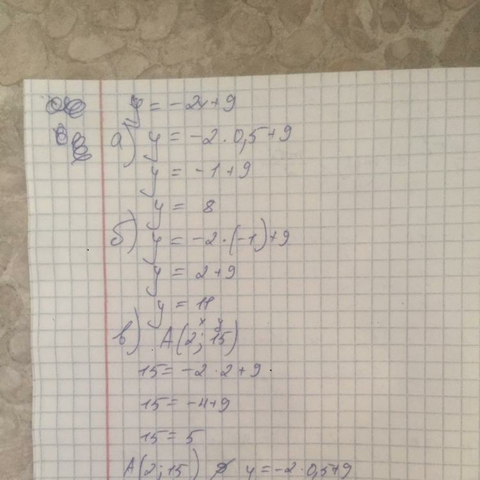 y = -2x+9
а) y = -2·0,5+9
y = -1+9
y = 8
б) y = -2·(-1)+9
y = 2+9
y = 11
x y
в) A(2;15)
15 = -2·2+9
15 = -4+9
15 = 5
A(2;15) y = -2·0,5+9